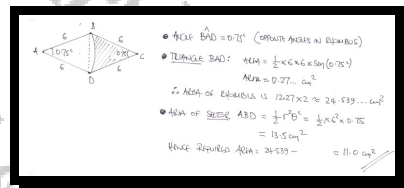 B
6 6
A 0.75ᶜ 0.75ᶜ C
6 6
D
• ANGLE BÂD = 0.75ᶜ (OPPOSITE ANGLES IN RHOMBUS)
• TRIANGLE BAD: AREA = 1/2 × 6 × 6 × SIN (0.75ᶜ)
AREA = 12.27... cm²
∴ AREA OF RHOMBUS IS 12.27×2 ≈ 24.539... cm²
• AREA OF SECTOR ABD = 1/2 r²θᶜ = 1/2 × 6² × 0.75
= 13.5 cm²
HENCE REQUIRED AREA = 24.539 − = 11.0 cm²